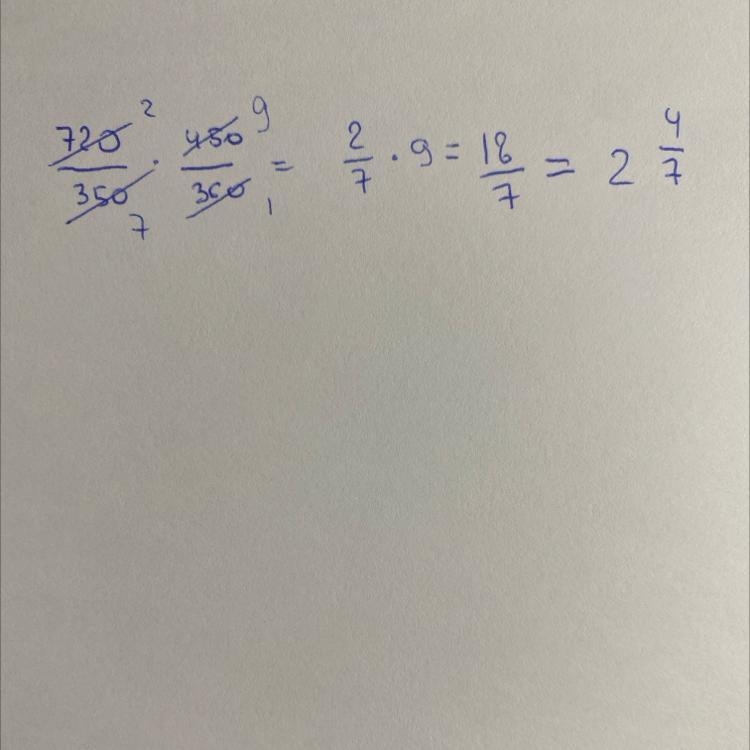 720/350 2 7 · 450/360 9 1 = 2/7 · 9 = 18/7 = 2 4/7